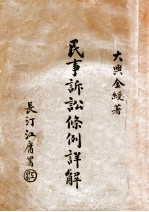 大興金綬著
民事訴訟條例詳解
長汀江庸署